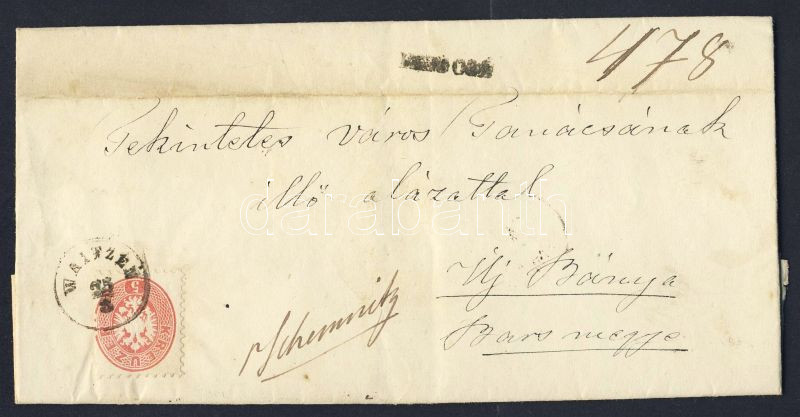 478
Tekintetes város Tanácsának
illő alázattal
darabanth
Új Bánya
Bars megye
Schemnitz
WAITZEN
25
3
5